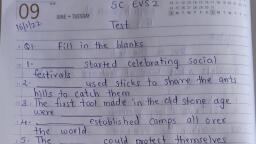 09
JUNE • TUESDAY
SC EVS 2
16/1/22
Test
Q1 Fill in the blanks
1- ________ started celebrating social
festivals
2- ________ used sticks to share the ants
hills to catch them
3. The first tool made in the old stone age
were ________
4. ________ established camps all over
the world
5. The ________ could protect themselves